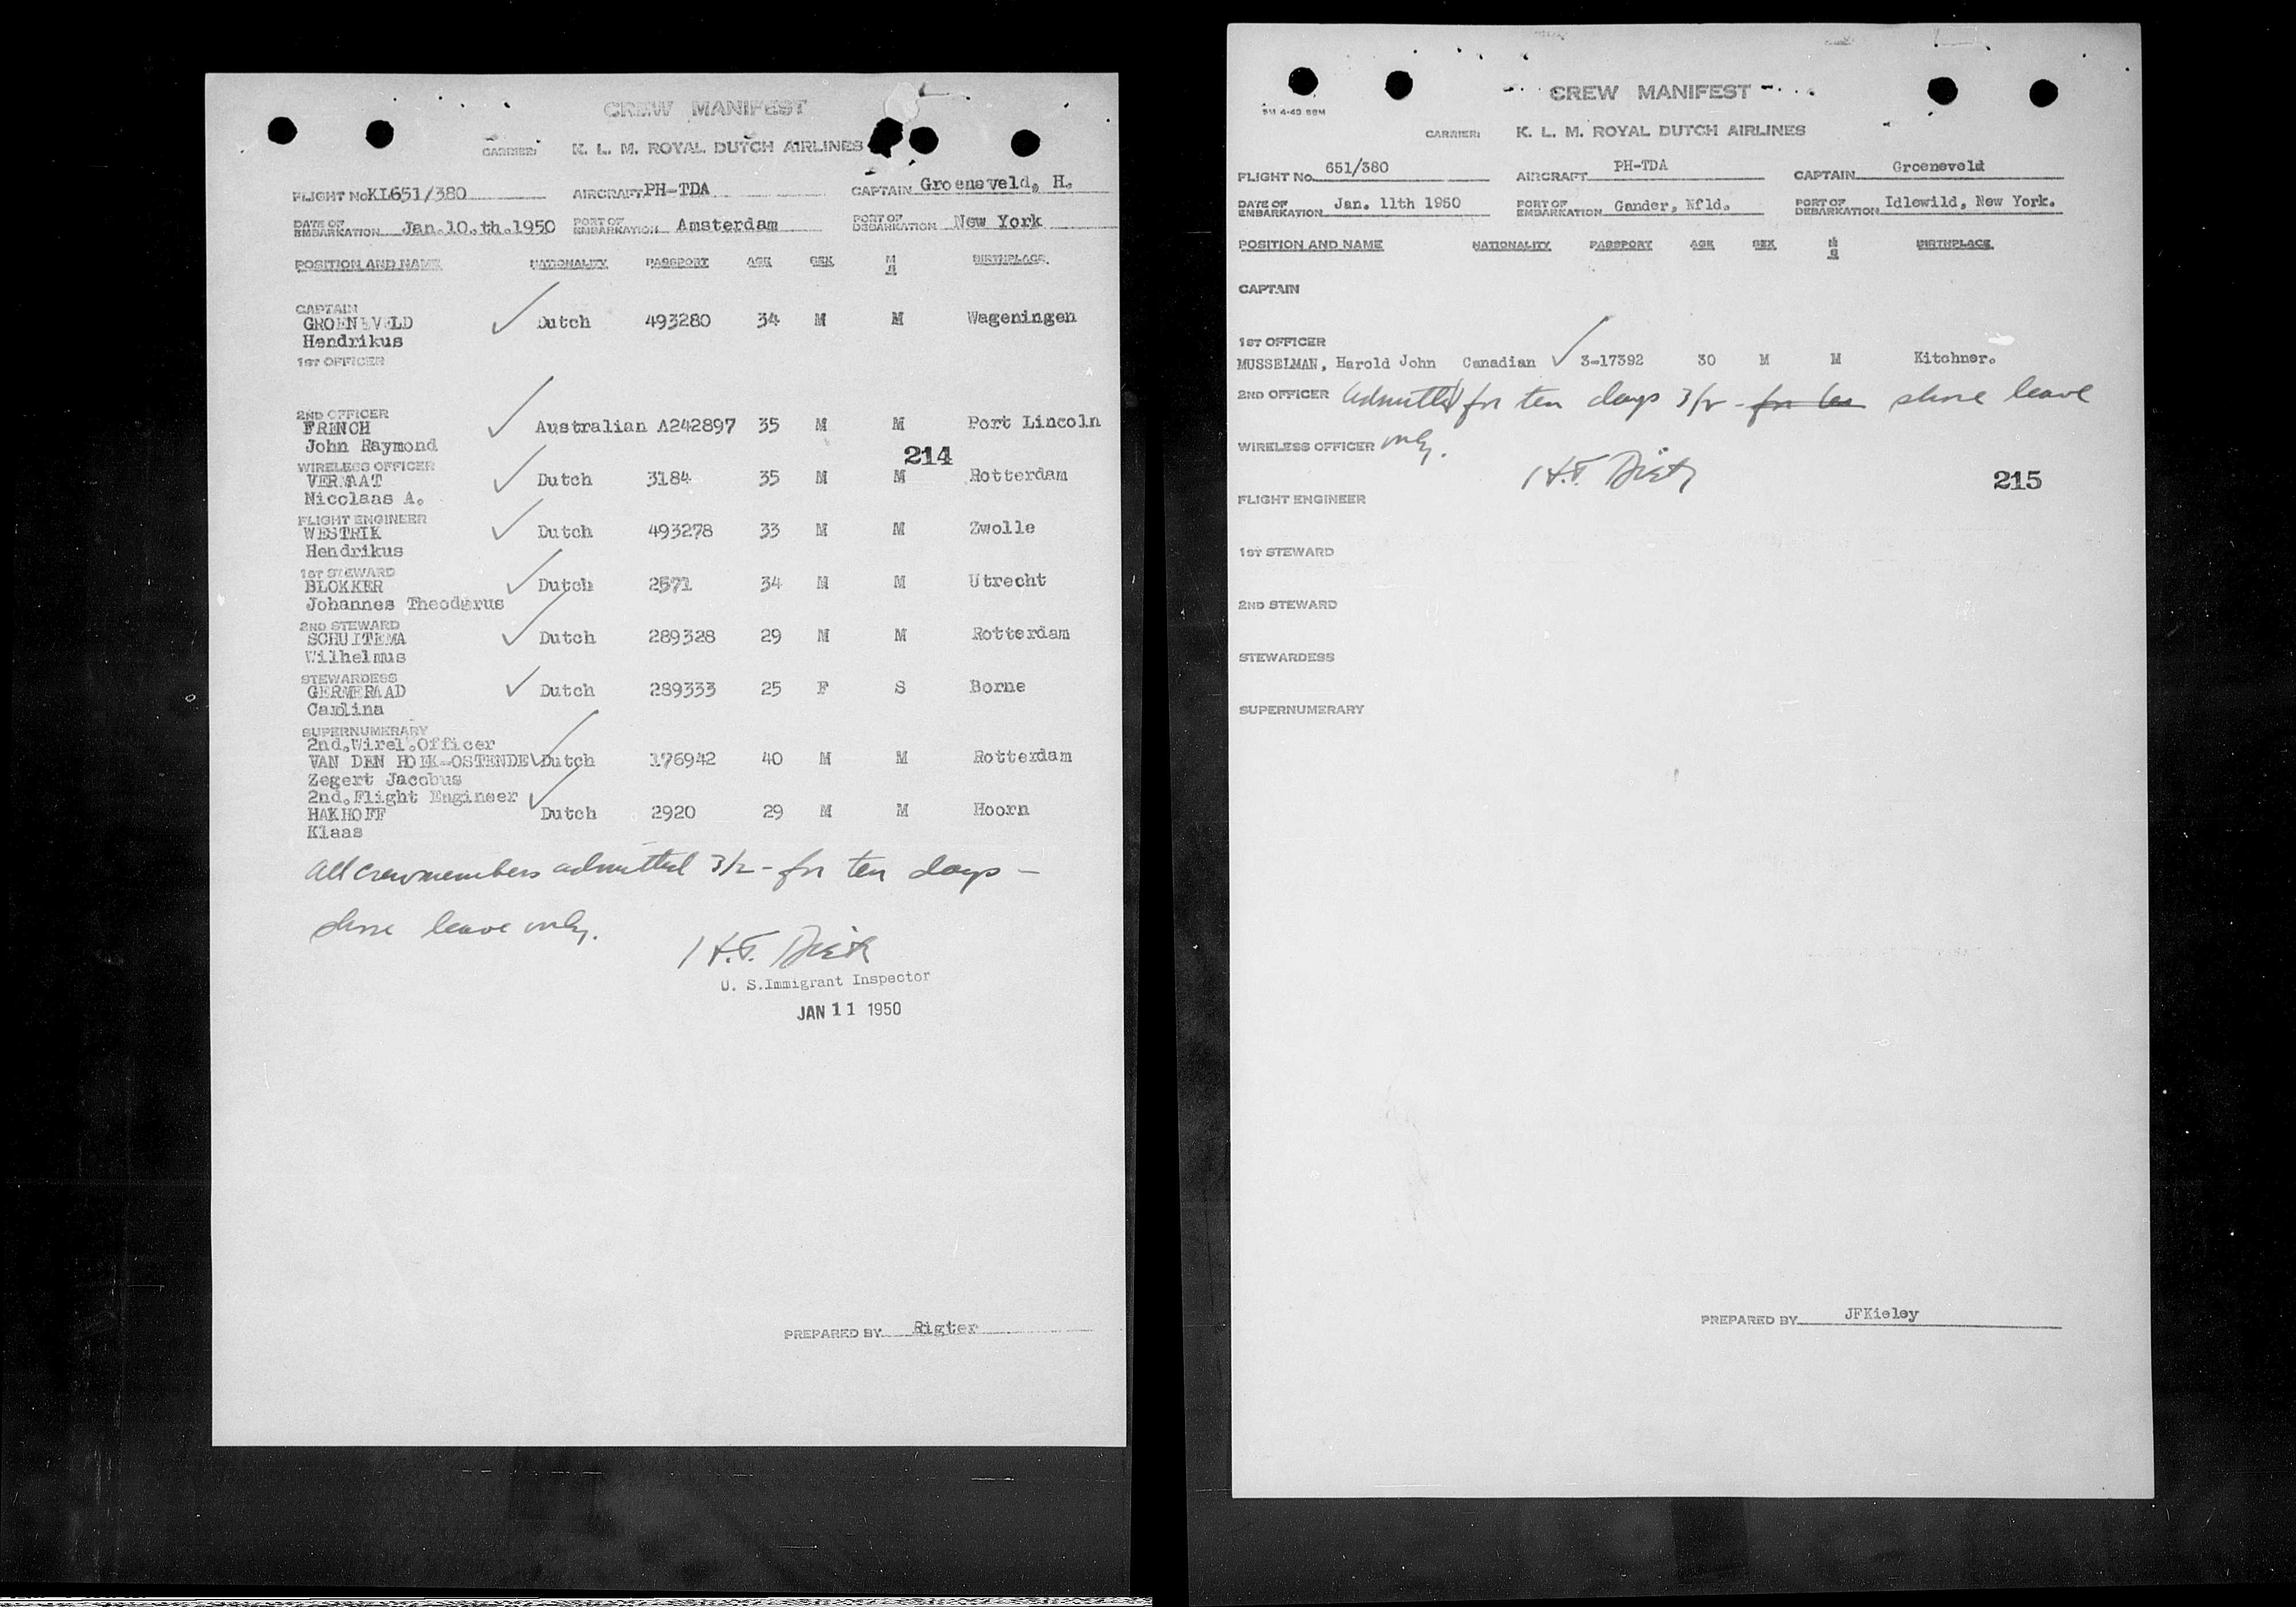 CREW MANIFEST
CARRIER: K. L. M. ROYAL DUTCH AIRLINES
FLIGHT No KL651/380 AIRCRAFT PH-TDA CAPTAIN Groeneveld, H.
DATE OF EMBARKATION Jan.10.th.1950 PORT OF EMBARKATION Amsterdam PORT OF DEBARKATION New York
POSITION AND NAME NATIONALITY PASSPORT AGE SEX M S BIRTHPLACE
CAPTAIN
GROENEVELD Dutch 493280 34 M M Wageningen
Hendrikus
1ST OFFICER
2ND OFFICER
FRENCH Australian A242897 35 M M Port Lincoln
John Raymond
214
WIRELESS OFFICER
VERMAAT Dutch 3184 35 M M Rotterdam
Nicolaas A.
FLIGHT ENGINEER
WESTRIK Dutch 493278 33 M M Zwolle
Hendrikus
1ST STEWARD
BLOKKER Dutch 2571 34 M M Utrecht
Johannes Theodorus
2ND STEWARD
SCHUITEMA Dutch 289328 29 M M Rotterdam
Wilhelmus
STEWARDESS
GERMERAAD Dutch 289333 25 F S Borne
Carolina
SUPERNUMERARY
2nd.Wirel.Officer
VAN DEN HOEK-OSTENDE Dutch 176942 40 M M Rotterdam
Zegert Jacobus
2nd.Flight Engineer
HAKHOFF Dutch 2920 29 M M Hoorn
Klaas
All crewmembers admitted 3/2 - for ten days -
shore leave only.
H.F.
U. S.Immigrant Inspector
JAN 11 1950
PREPARED BY Rigter
CREW MANIFEST
CARRIER: K. L. M. ROYAL DUTCH AIRLINES
FLIGHT No. 651/380 AIRCRAFT PH-TDA CAPTAIN Groeneveld
DATE OF EMBARKATION Jan. 11th 1950 PORT OF EMBARKATION Gander, Nfld. PORT OF DEBARKATION Idlewild, New York.
POSITION AND NAME NATIONALITY PASSPORT AGE SEX M S BIRTHPLACE
CAPTAIN
1ST OFFICER
MUSSELMAN, Harold John Canadian 3-17392 30 M M Kitchner.
2ND OFFICER Admitted for ten days 3/2 - for ten shore leave
WIRELESS OFFICER only.
H.F.
215
FLIGHT ENGINEER
1ST STEWARD
2ND STEWARD
STEWARDESS
SUPERNUMERARY
PREPARED BY JFKieley